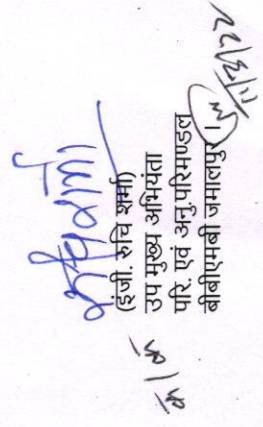 (इंजी. रुचि शर्मा)
उप मुख्य अभियंता
परि. एवं अनु.परिमण्डल
बीबीएमबी जमालपुर।